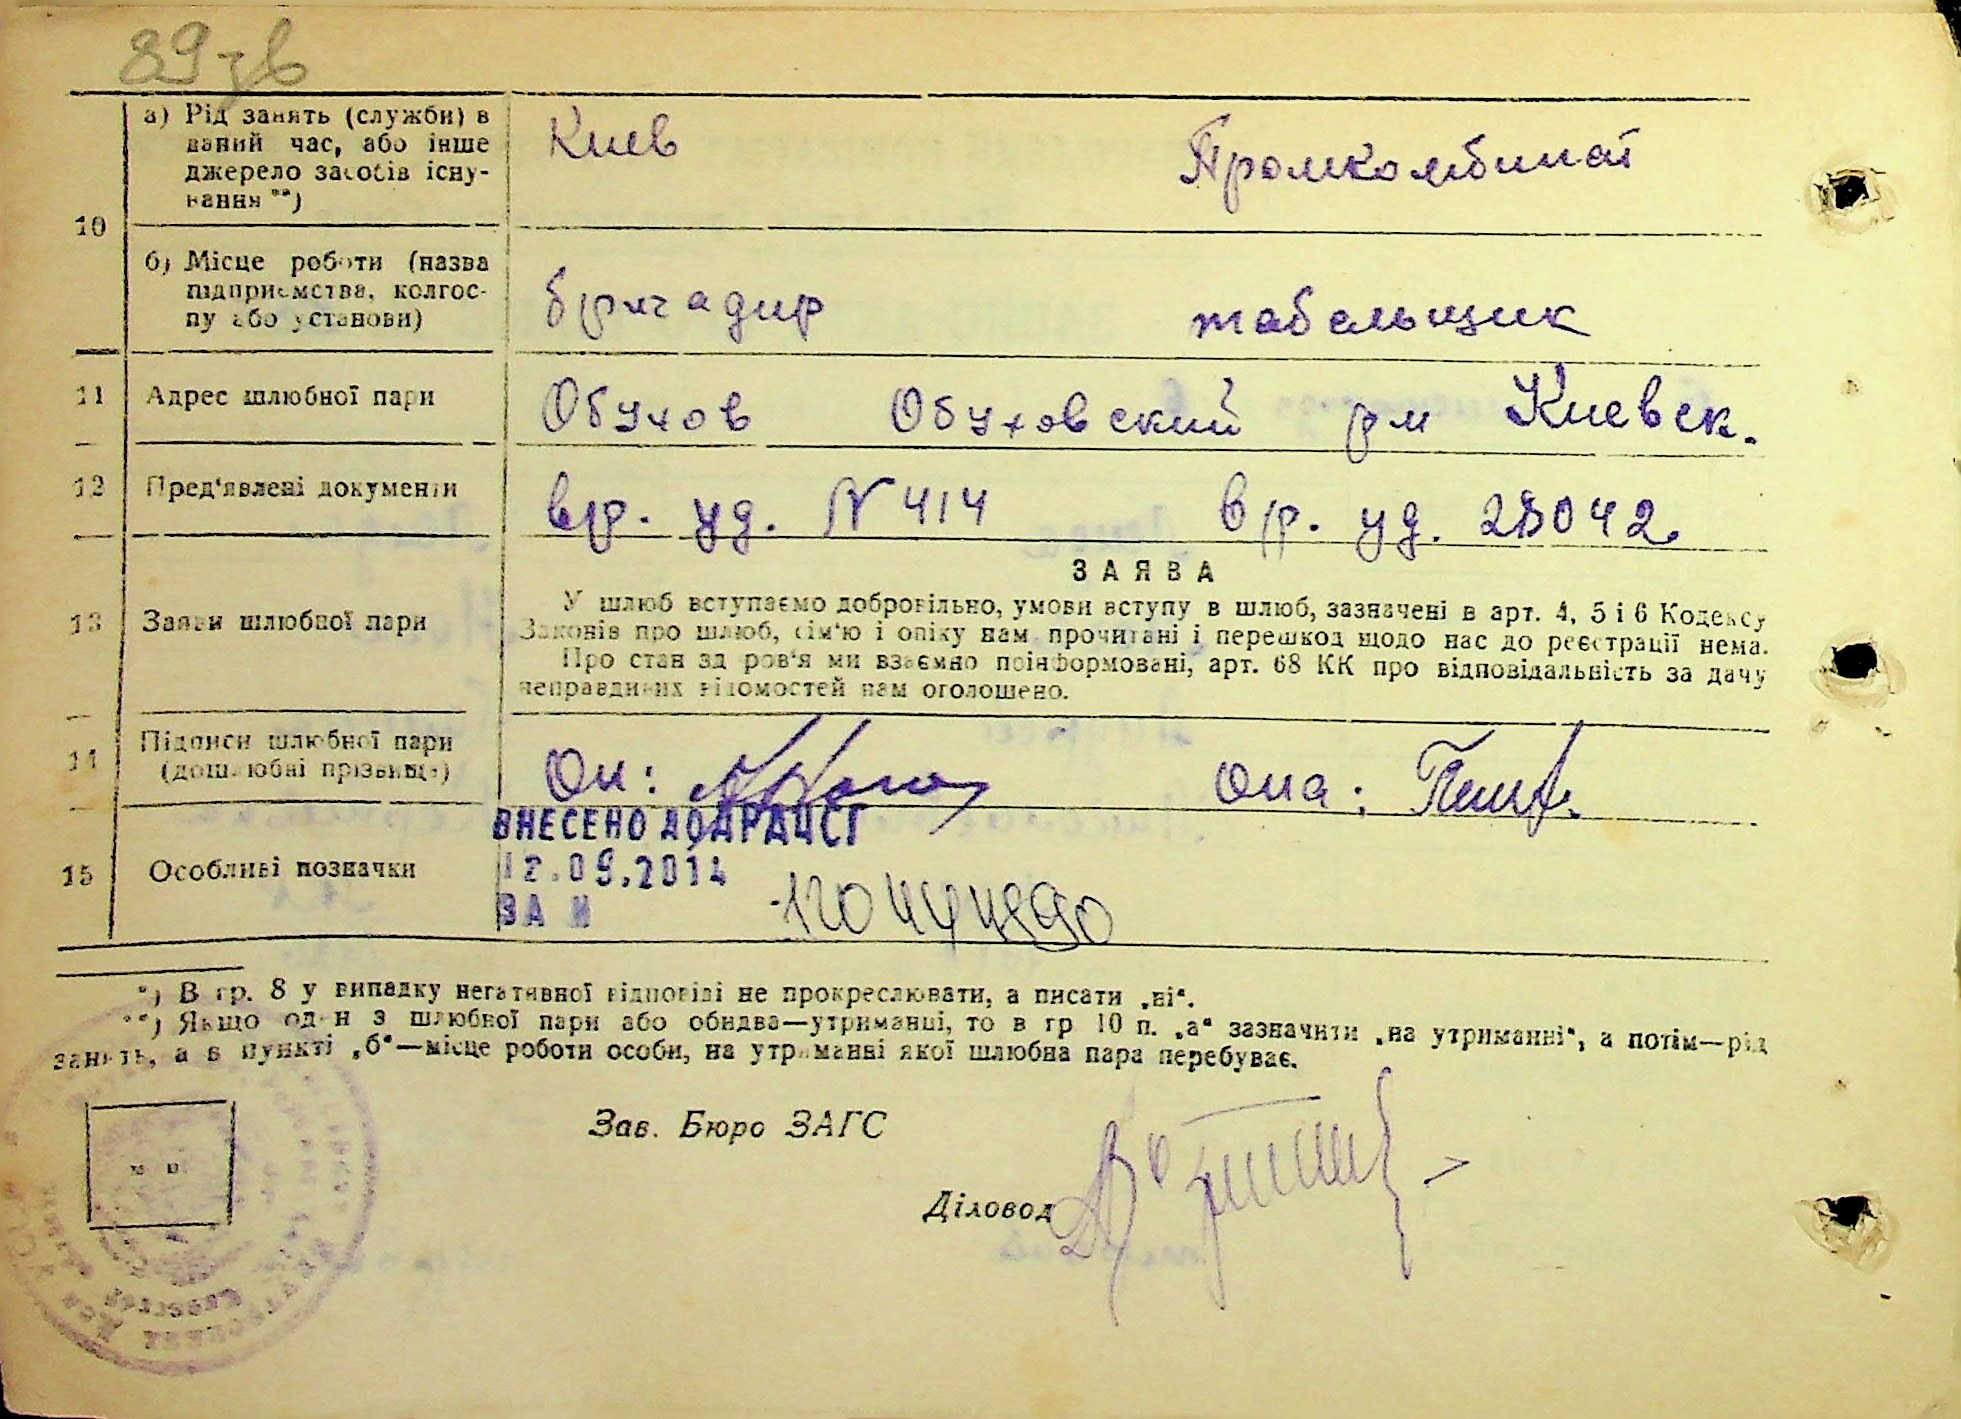 89 зв
10
а) Рід занять (служби) в
даний час, або інше
джерело засобів існу-
вання **)
Киев Промкомбинат
б) Місце роботи (назва
підприємства, колгос-
пу або установи)
бригадир табельщик
11 Адрес шлюбної пари Обухов Обуховский рн Киевск.
12 Пред'явлені документи вр. уд. N 414 вр. уд. 28042.
ЗАЯВА
13 Заяви шлюбної пари
У шлюб вступаємо добровільно, умови вступу в шлюб, зазначені в арт. 4, 5 і 6 Кодексу
Законів про шлюб, сім'ю і опіку нам прочитані і перешкод щодо нас до реєстрації нема.
Про стан здоров'я ми взаємно поінформовані, арт. 68 КК про відповідальність за дачу
неправдивих відомостей нам оголошено.
14 Підписи шлюбної пари
(дошлюбні прізвища)
Он: Она:
ВНЕСЕНО ДО ДРАЦСГ
15 Особливі позначки
12.09.2014
ЗА N
*) В гр. 8 у випадку негативної відповіді не прокреслювати, а писати „ні“.
**) Якщо один з шлюбної пари або обидва—утриманці, то в гр 10 п. „а“ зазначити „на утриманні“, а потім—рід
занять, а в пункті „б“—місце роботи особи, на утриманні якої шлюбна пара перебуває.
Зав. Бюро ЗАГС
Діловод